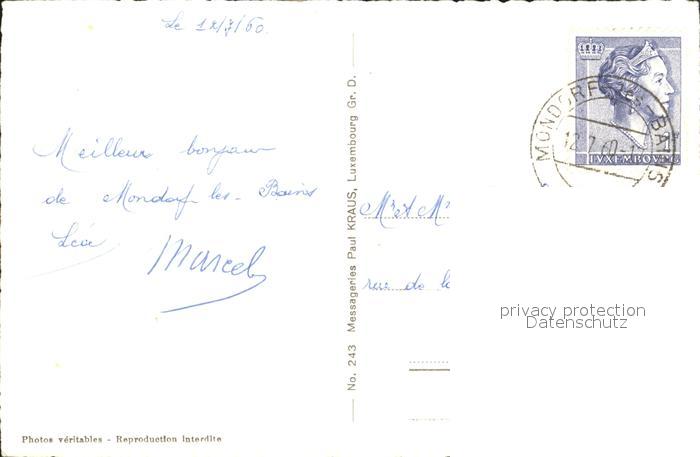 Le 12/7/60.
Meilleurs bonjour
de Mondorf-les-Bains
Léa
Marcel
Mr et M
rue de la
No. 243 Messageries Paul KRAUS, Luxembourg Gr. D.
MONDORF-LES-BAINS
12.7.60
LUXEMBOURG
privacy protection
Datenschutz
Photos véritables - Reproduction interdite